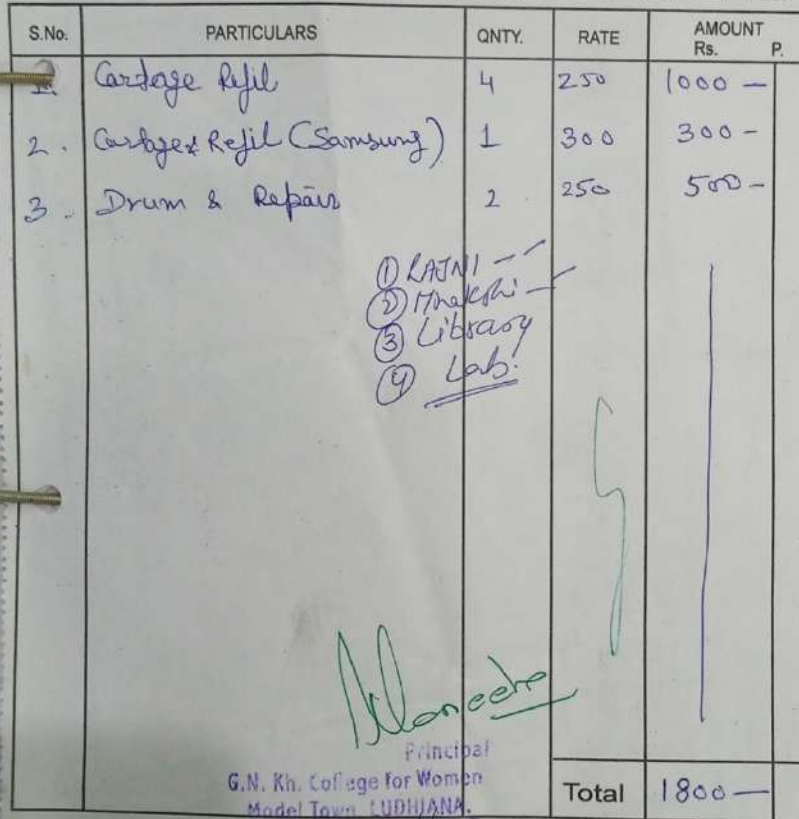 S.No. PARTICULARS QNTY. RATE AMOUNT
Rs. P.
1. Cartage Refil 4 250 1000 —
2. Cartage Refil (Samsung) 1 300 300 -
3. Drum & Repair 2 250 500 -
① RAJNI -
② Mnakshi -
③ Library
④ Lab.
Principal
G.N. Kh. College for Women
Model Town, LUDHIANA.
Total 1800 —